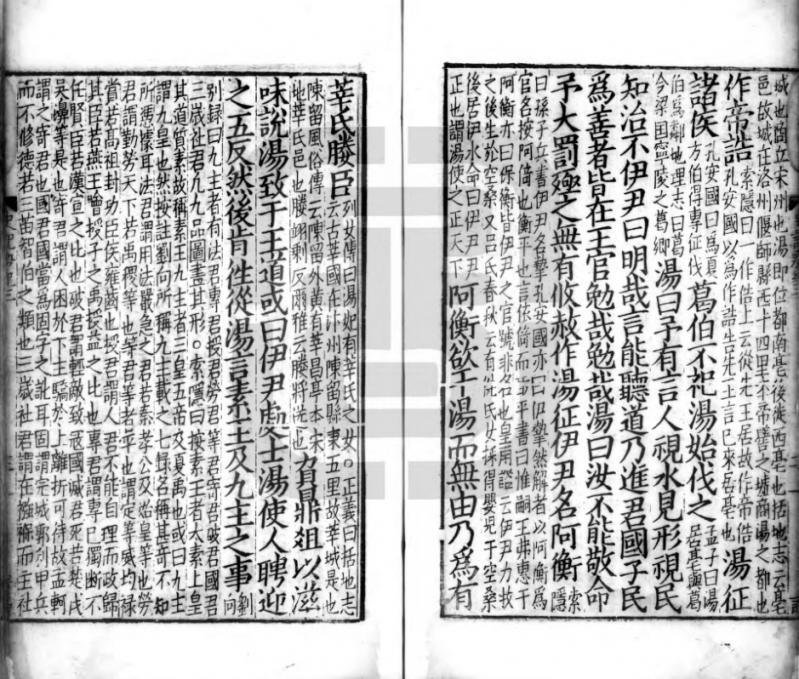 城也简立宋州也湯即位都南亳後徙西亳也括地志云亳
邑故城在洛州偃師縣西十四里本帝嚳之墟商湯之都也
作帝誥索隱曰一作俈上云從先王居故作帝俈孔安國以為作誥告先王言已來居亳也湯征
諸侯孔安國曰為夏方伯得專征伐葛伯不祀湯始伐之孟子曰湯居亳與葛
伯為鄰地理志曰葛今梁国寧陵之葛鄉湯曰予有言人視水見形視民
知治不伊尹曰明哉言能聽道乃進君國子民
為善者皆在王官勉哉勉哉湯曰汝不能敬命
予大罰殛之無有攸赦作湯征伊尹名阿衡索隱
曰孫子兵書伊尹名摯孔安國亦曰伊摯然解者以阿衡為
官名按阿倚也衡平也言依倚而取平書曰惟嗣王弗惠于
阿衡亦曰保衡皆伊尹之官號非名也皇甫謐云伊尹力牧
之後生於空桑又呂氏春秋云有侁氏女採得嬰兒于空桑
後居伊水命曰伊尹尹正也謂湯使之正天下阿衡欲干湯而無由乃為有
莘氏媵臣列女傳曰湯妃有莘氏之女。正義曰括地志云古莘國在汴州陳留縣東五里故莘城是也
陳留風俗傳云陳留外黃有莘昌亭本宋地莘氏邑也媵翊剩反爾雅云媵將送也負鼎俎以滋
味說湯致于王道或曰伊尹處士湯使人聘迎
之五反然後肯往從湯言素王及九主之事劉向
別録曰九主者有法君專君授君勞君等君寄君破君國君
三歲社君凡九品圖畫其形。索隱曰按素王者太素上皇
其道質素故稱素王九主者三皇五帝及夏禹也或曰九主
謂九皇也然按註劉向所稱九主載之七録名稱甚奇不知
所憑據耳法君謂用法嚴急之君若秦孝公及始皇等也勞
君謂勤勞天下若禹稷等也等君等者平也謂定等威均祿
賞若高祖封功臣侯雍齒也授君謂人君不能自理而政歸
其臣若燕王噲授子之禹授益之比也專君謂專已獨斷不
任賢臣若漢宣之比也破君謂輕敵致寇國滅君死若楚戊
吳濞等是也寄君謂人困於下主驕於上離折可待故孟軻
謂之寄君也國君國當為固字之訛耳固謂完城郭利甲兵
而不修德若三苗智伯之類也三歲社君謂在襁褓而主社